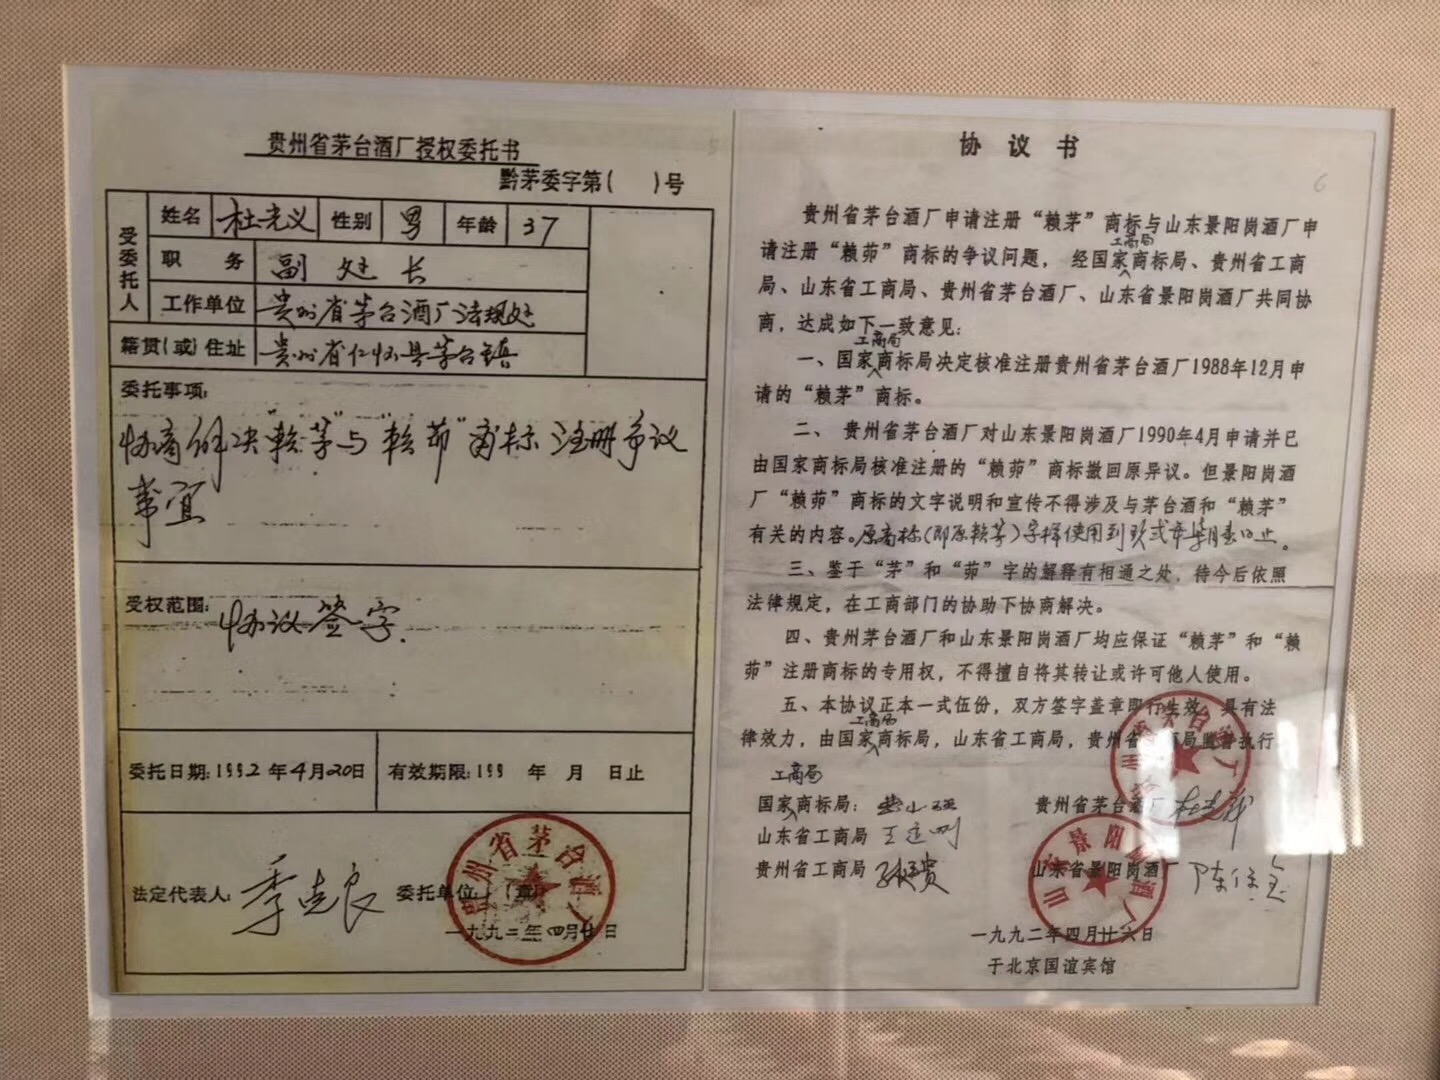 贵州省茅台酒厂授权委托书
黔茅委字第( )号
受委托人
姓名 杜光义 性别 男 年龄 37
职务 副处长
工作单位 贵州省茅台酒厂法规处
籍贯(或)住址 贵州省仁怀县茅台镇
委托事项:
协商解决“赖茅”与“赖茆”商标注册争议
事宜
受权范围: 协议签字.
委托日期:1992年4月20日 有效期限:199 年 月 日止
法定代表人: 季克良 委托单位: (章)
贵州省茅台酒厂
一九九二年四月廿日
协议书
6
贵州省茅台酒厂申请注册“赖茅”商标与山东景阳岗酒厂申
请注册“赖茆”商标的争议问题，经国家工商局商标局、贵州省工商
局、山东省工商局、贵州省茅台酒厂、山东省景阳岗酒厂共同协
商，达成如下一致意见:
一、国家工商局商标局决定核准注册贵州省茅台酒厂1988年12月申
请的“赖茅”商标。
二、贵州省茅台酒厂对山东景阳岗酒厂1990年4月申请并已
由国家商标局核准注册的“赖茆”商标撤回原异议。但景阳岗酒
厂“赖茆”商标的文字说明和宣传不得涉及与茅台酒和“赖茅”
有关的内容。原商标(即原赖茅)字样使用到
止。
三、鉴于“茅”和“茆”字的解释有相通之处，待今后依照
法律规定，在工商部门的协助下协商解决。
四、贵州茅台酒厂和山东景阳岗酒厂均应保证“赖茅”和“赖
茆”注册商标的专用权，不得擅自将其转让或许可他人使用。
五、本协议正本一式伍份，双方签字盖章即行生效，具有法
律效力，由国家工商局商标局，山东省工商局，贵州省工商局监督执行
国家工商局商标局: 贵州省茅台酒厂
山东省工商局
贵州省工商局 山东省景阳岗酒厂
一九九二年四月廿六日
于北京国谊宾馆